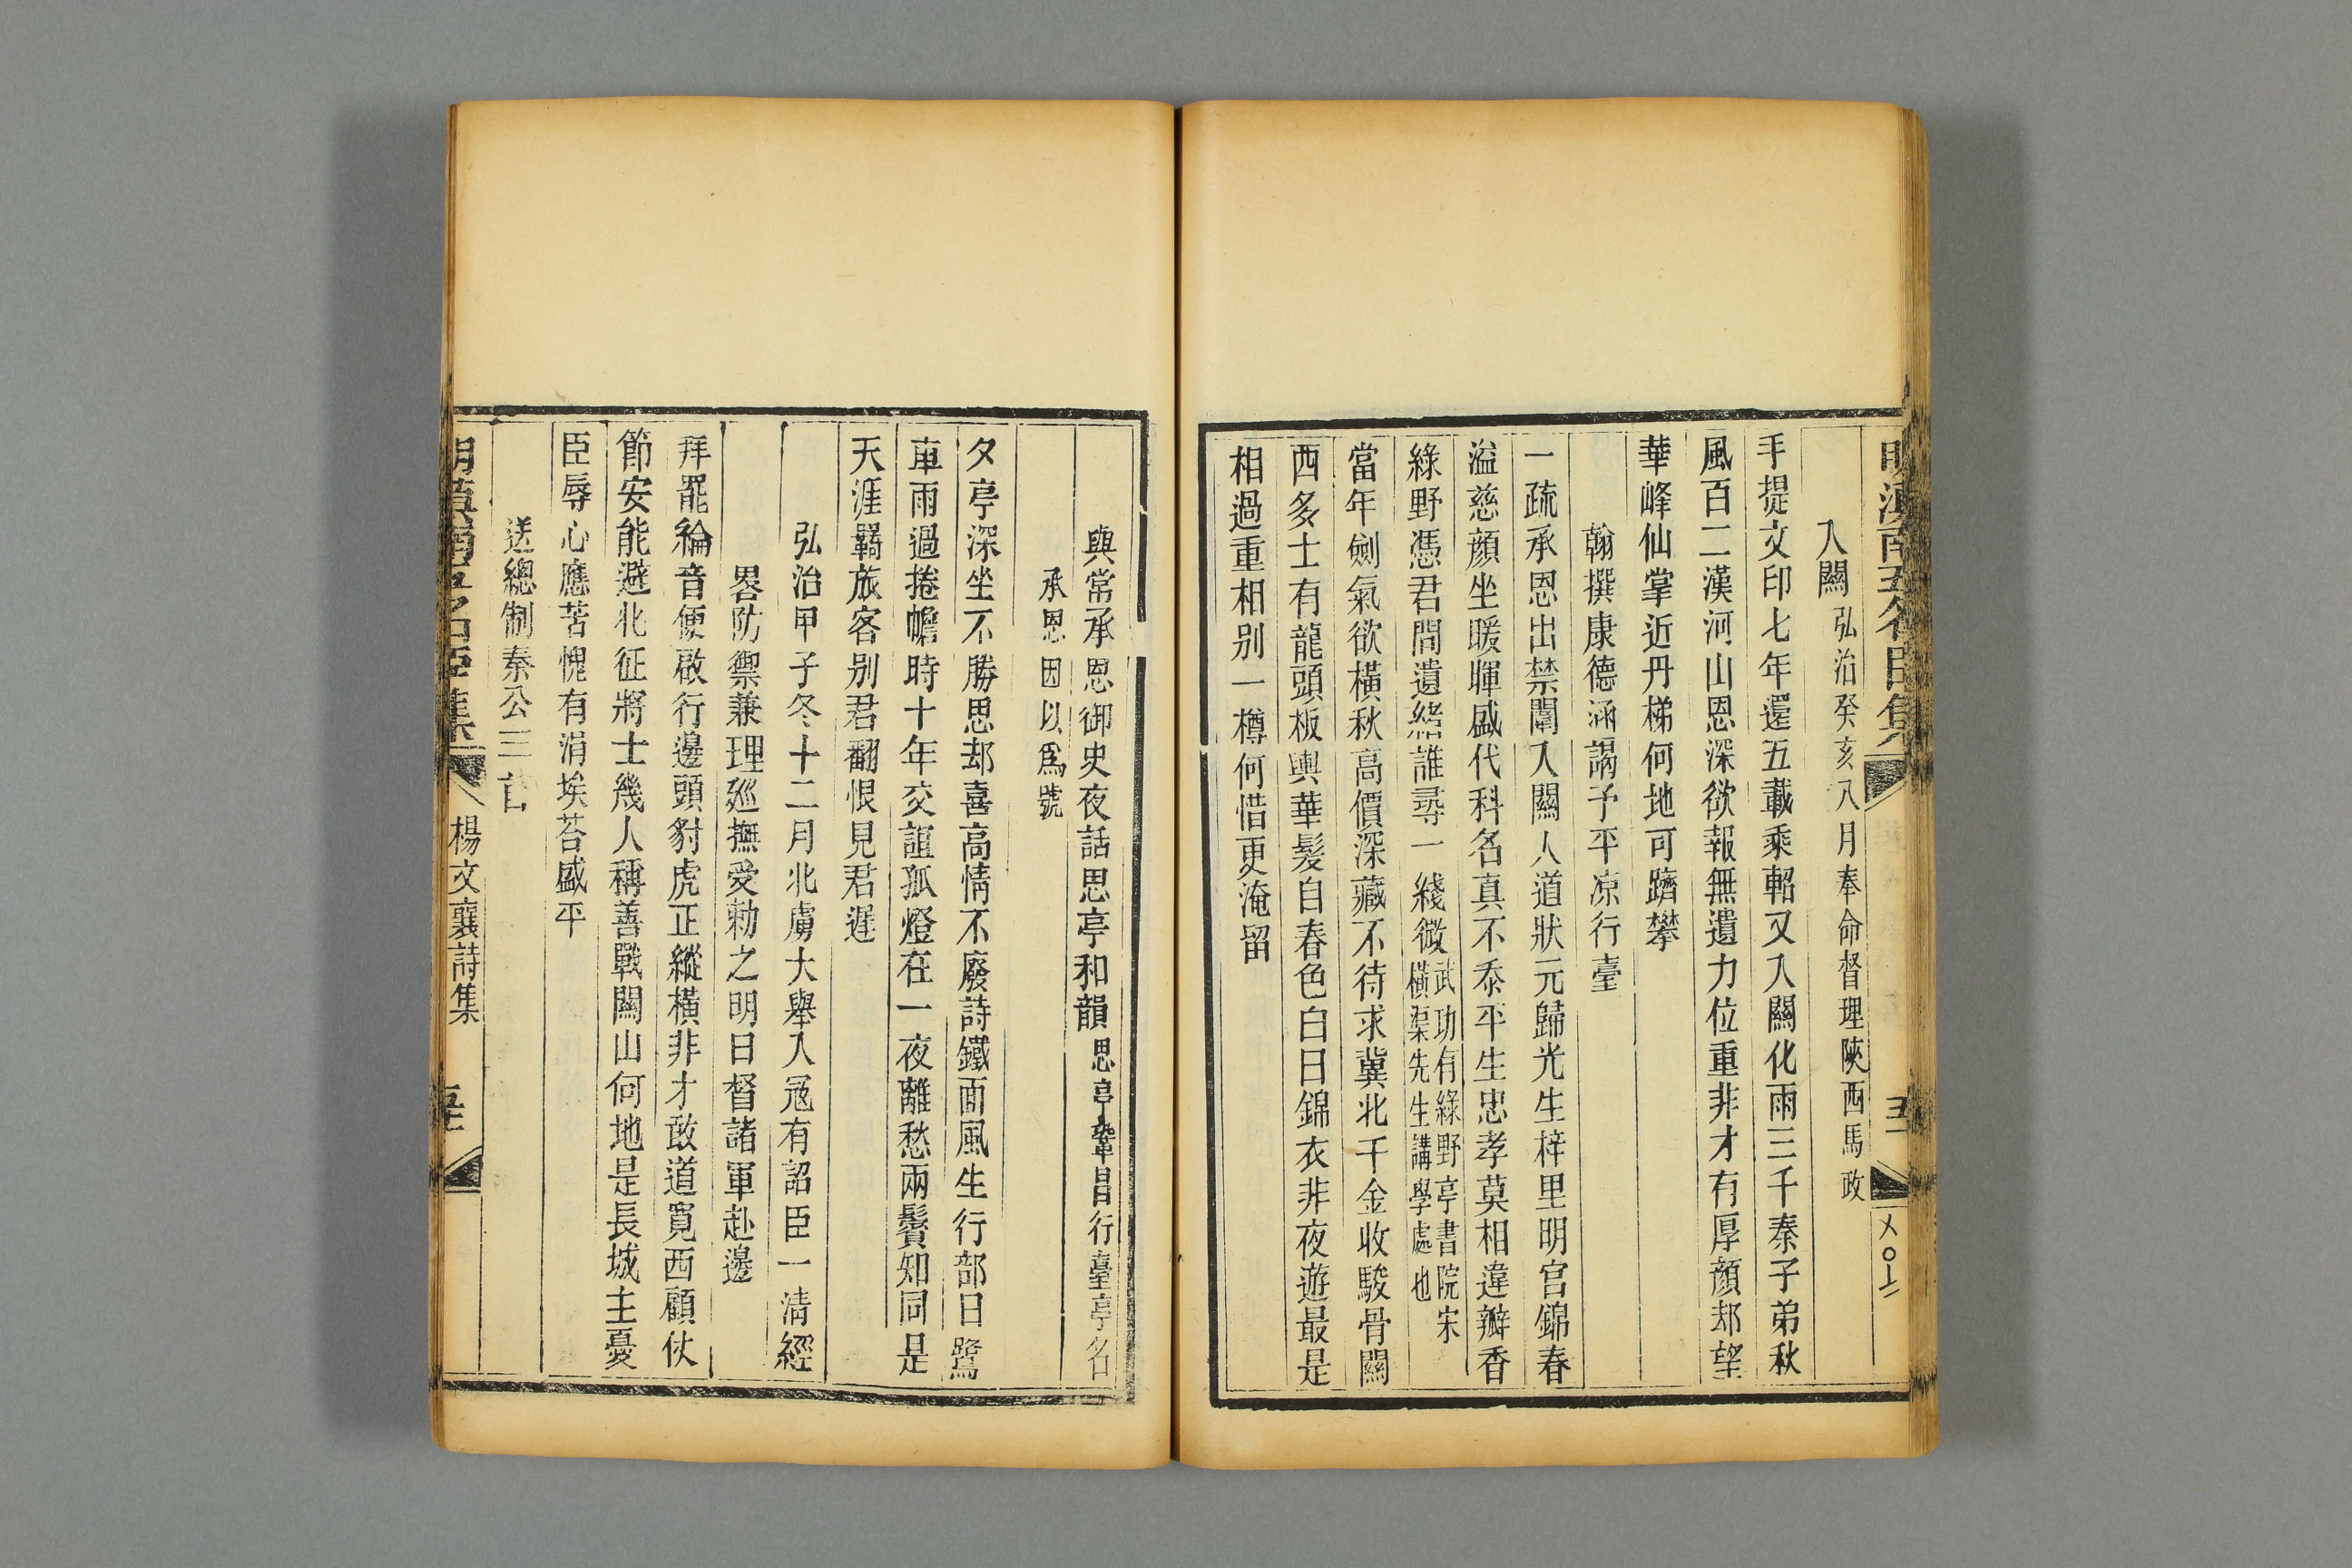 入關弘治癸亥八月奉命督理陝西馬政
手提文印七年還五載乘軺又入關化雨三千秦子弟秋
風百二漢河山恩深欲報無遺力位重非才有厚顏却望
華峰仙掌近丹梯何地可躋攀
翰撰康德涵謁予平凉行臺
一疏承恩出禁闈入關人道狀元歸光生梓里明宮錦春
溢慈顏坐暖暉盛代科名真不忝平生忠孝莫相違瓣香
綠野憑君問遺緒誰尋一綫微武功有綠野亭書院宋
橫渠先生講學處也
當年劍氣欲橫秋高價深藏不待求冀北千金收駿骨關
西多士有龍頭板輿華髮自春色白日錦衣非夜遊最是
相過重相别一樽何惜更淹留
與常承恩御史夜話思亭和韻思亭鞏昌行臺亭名
承恩因以爲號
夕亭深坐不勝思却喜高情不廢詩鐵面風生行部日鷺
車雨過捲幨時十年交誼孤燈在一夜離愁兩鬢知同是
天涯羇旅客别君翻恨見君遲
弘治甲子冬十二月北虜大舉入冦有詔臣一清經
畧防禦兼理廵撫受勅之明日督諸軍赴邊
拜罷綸音便啟行邊頭豺虎正縱橫非才敢道寬西顧仗
節安能避北征將士幾人稱善戰關山何地是長城主憂
臣辱心應苦愧有涓埃荅盛平
送總制秦公三首
楊文襄詩集